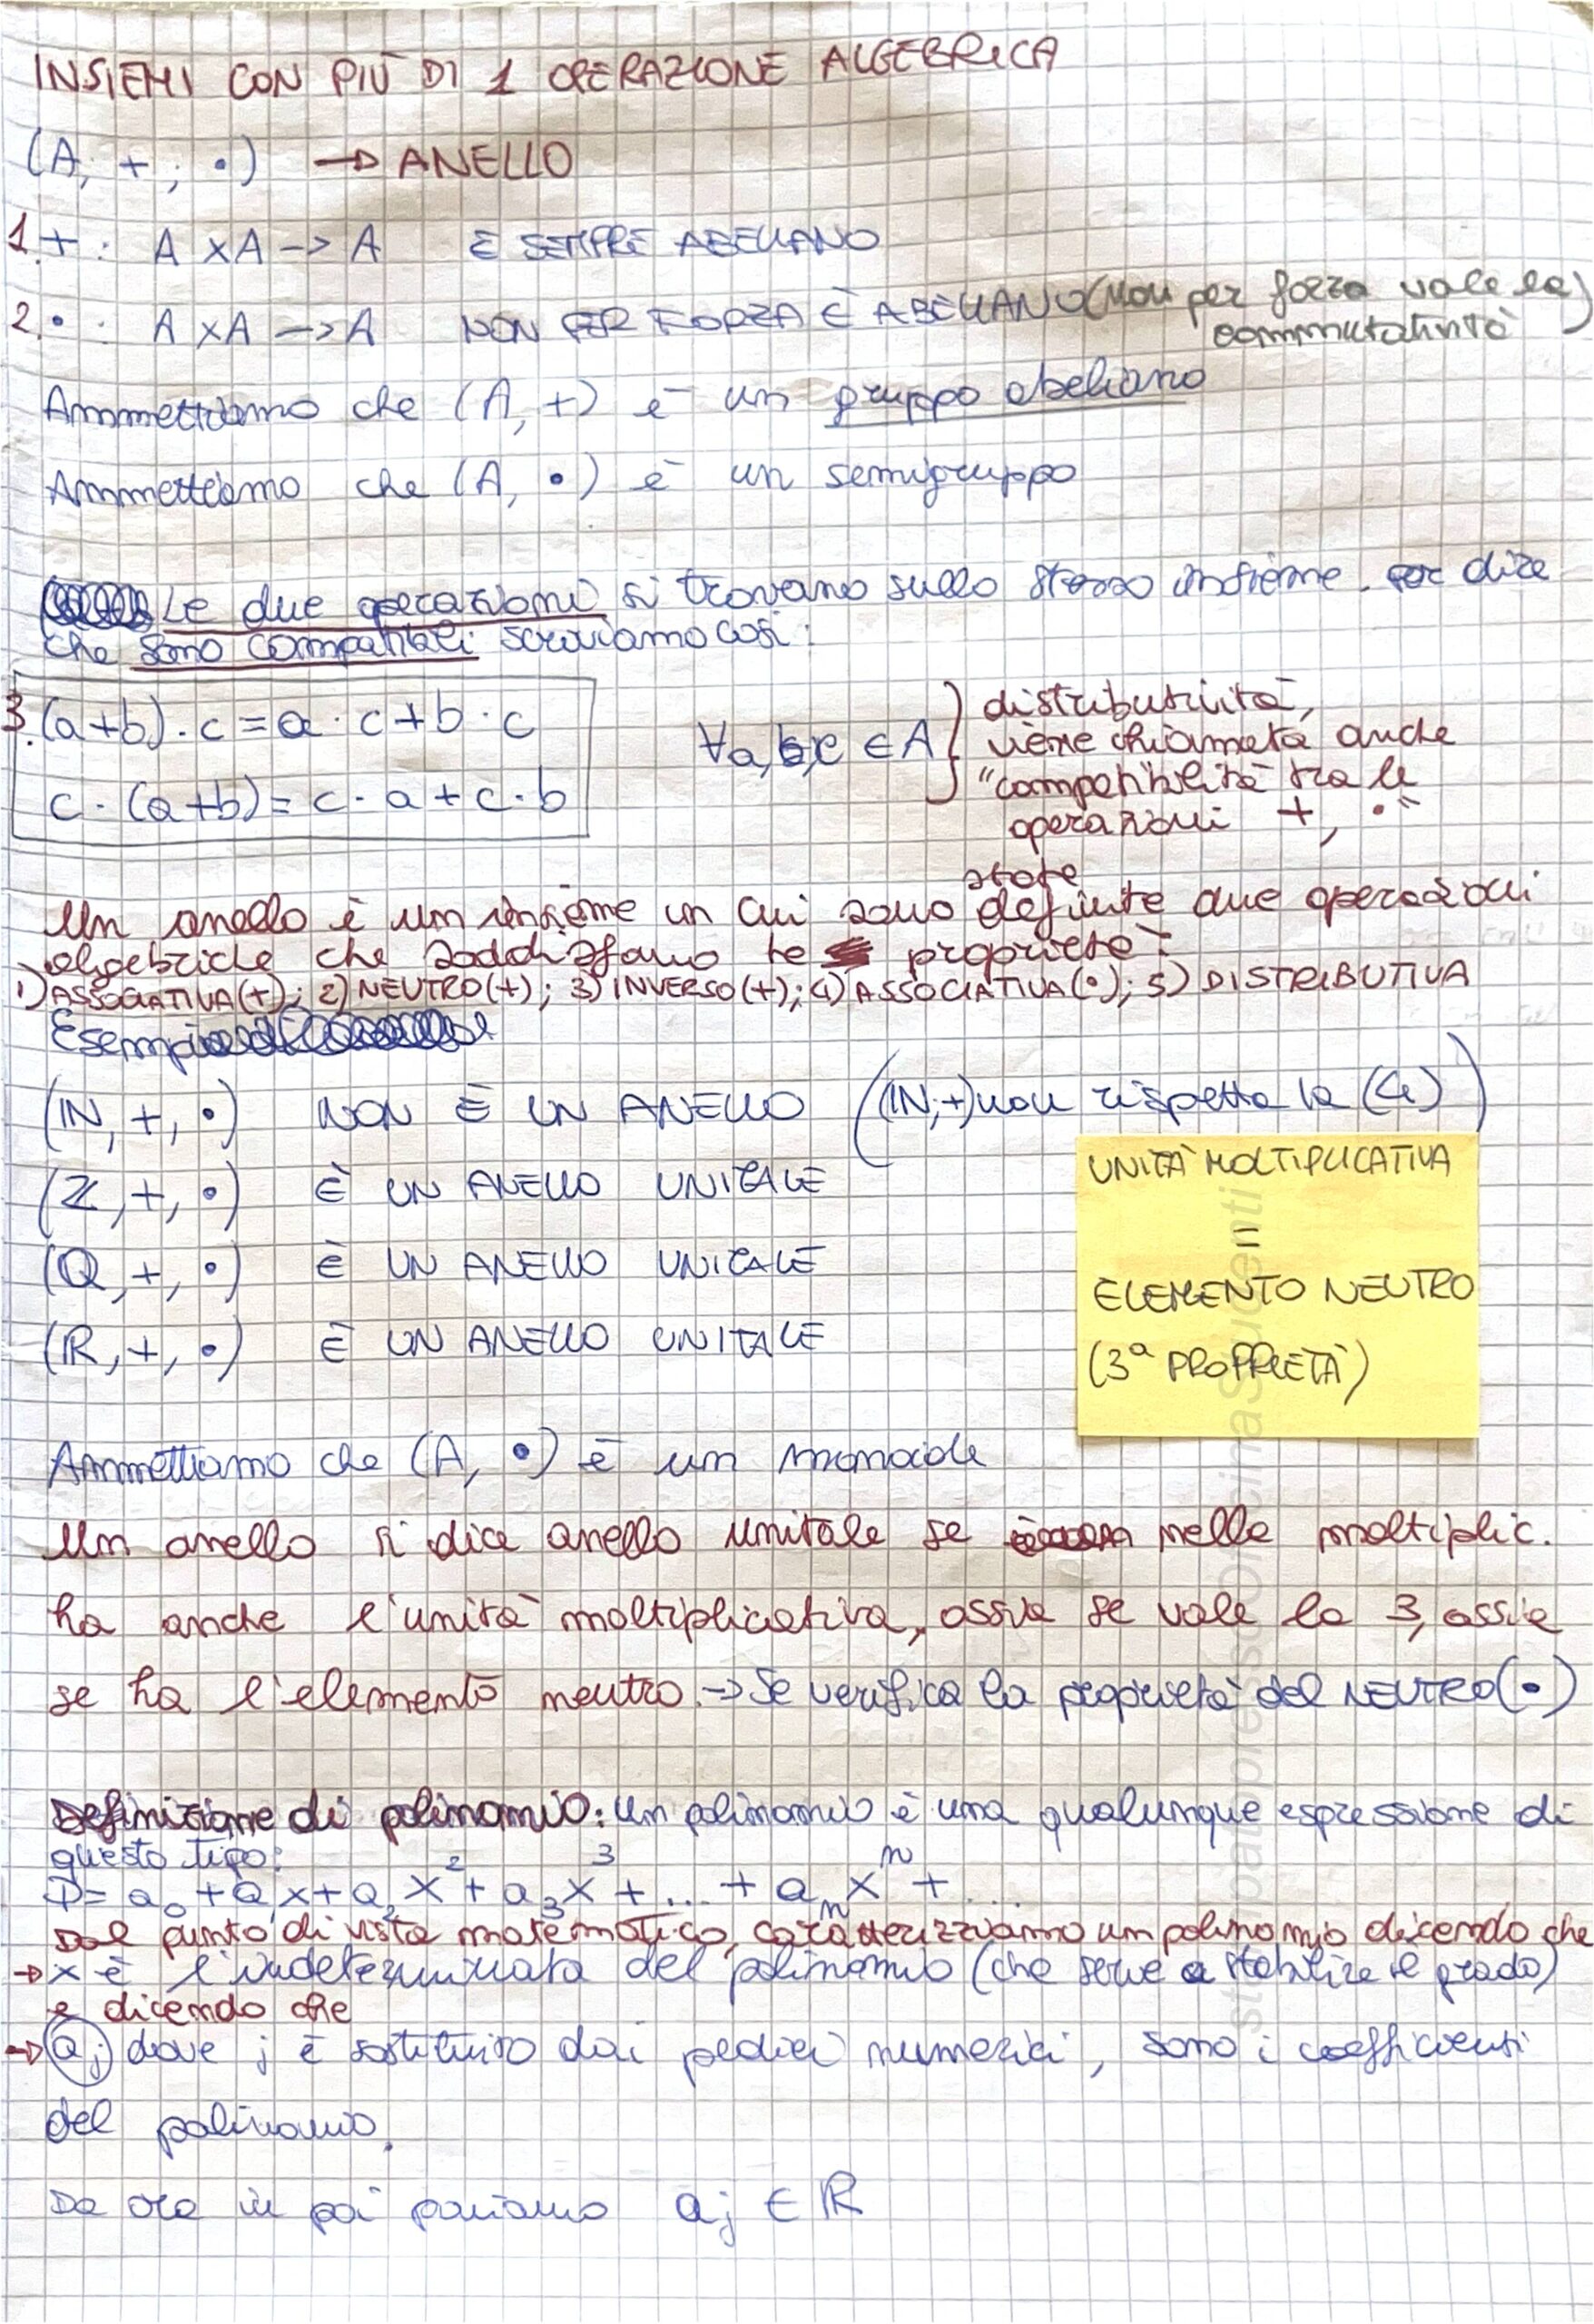 INSIEMI CON PIÙ DI 1 OPERAZIONE ALGEBRICA
(A, +; •) → ANELLO
1. + : A x A -> A È SEMPRE ABELIANO
2. • : A x A -> A NON PER FORZA È ABELIANO (non per forza vale la
commutatività)
Ammettiamo che (A, +) è un gruppo abeliano
Ammettiamo che (A, •) è un semigruppo
Le due operazioni si trovano sullo stesso insieme. per dire
che sono compatibili scriviamo così:
3. (a+b)·c = a·c+b·c
c·(a+b) = c·a+c·b
∀a,b,c ∈ A
distributività,
viene chiamata anche
"compatibilità tra le
operazioni +, •"
state
Un anello è un insieme in cui sono definite due operazioni
algebriche che soddisfano le proprietà:
1) ASSOCIATIVA(+); 2) NEUTRO(+); 3) INVERSO(+); 4) ASSOCIATIVA(•); 5) DISTRIBUTIVA
Esempi
(ℕ, +, •) NON È UN ANELLO ((ℕ,+) non rispetta la (4))
(ℤ, +, •) È UN ANELLO UNITALE
(ℚ, +, •) È UN ANELLO UNITALE
(ℝ, +, •) È UN ANELLO UNITALE
UNITÀ MOLTIPLICATIVA
=
ELEMENTO NEUTRO
(3ª PROPRIETÀ)
Ammettiamo che (A, •) è un monoide
Un anello si dice anello unitale se nella moltiplic.
ha anche l'unità moltiplicativa, ossia se vale la 3, ossia
se ha l'elemento neutro. → Se verifica la proprietà del NEUTRO(•)
Definizione di polinomio: Un polinomio è una qualunque espressione di
questo tipo:
P = a₀ + a₁x + a₂x² + a₃x³ + ... + aₙxⁿ + ...
Dal punto di vista matematico, caratterizziamo un polinomio dicendo che
→ x è l'indeterminata del polinomio (che serve a stabilire il grado)
e dicendo che
→ aⱼ dove j è sostituito dai pedici numerici, sono i coefficienti
del polinomio.
Da ora in poi poniamo aⱼ ∈ ℝ